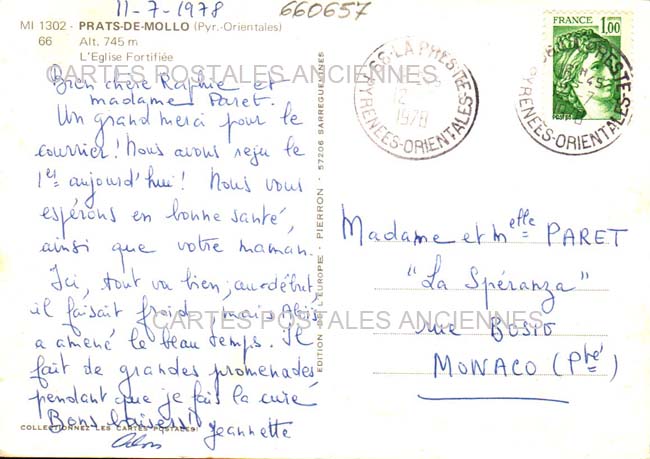 11-7-1978
660657
MI 1302 - PRATS-DE-MOLLO (Pyr.-Orientales)
66 Alt. 745 m
L'Eglise Fortifiée
CARTES POSTALES ANCIENNES
Bien chère Raphie et
madame Paret.
Un grand merci pour le
courrier! Nous avons reçu le
1er aujourd'hui! Nous vous
espérons en bonne santé,
ainsi que votre maman.
Ici, tout va bien; au début
il faisait froid, mais
a amené le beau temps. Il
fait de grandes promenades
pendant que je fais la cure
Bons baisers! Jeannette
COLLECTIONNEZ LES CARTES POSTALES
EDITION DE L'EUROPE - PIERRON - 57206 SARREGUEMINES
LA PRESTE
12
1978
PYRENEES-ORIENTALES
FRANCE 1,00
POSTES
LA PRESTE
PYRENEES-ORIENTALES
Madame et Melle PARET
"La Spéranza"
rue BOSIO
MONACO (Pté)
CARTES POSTALES ANCIENNES